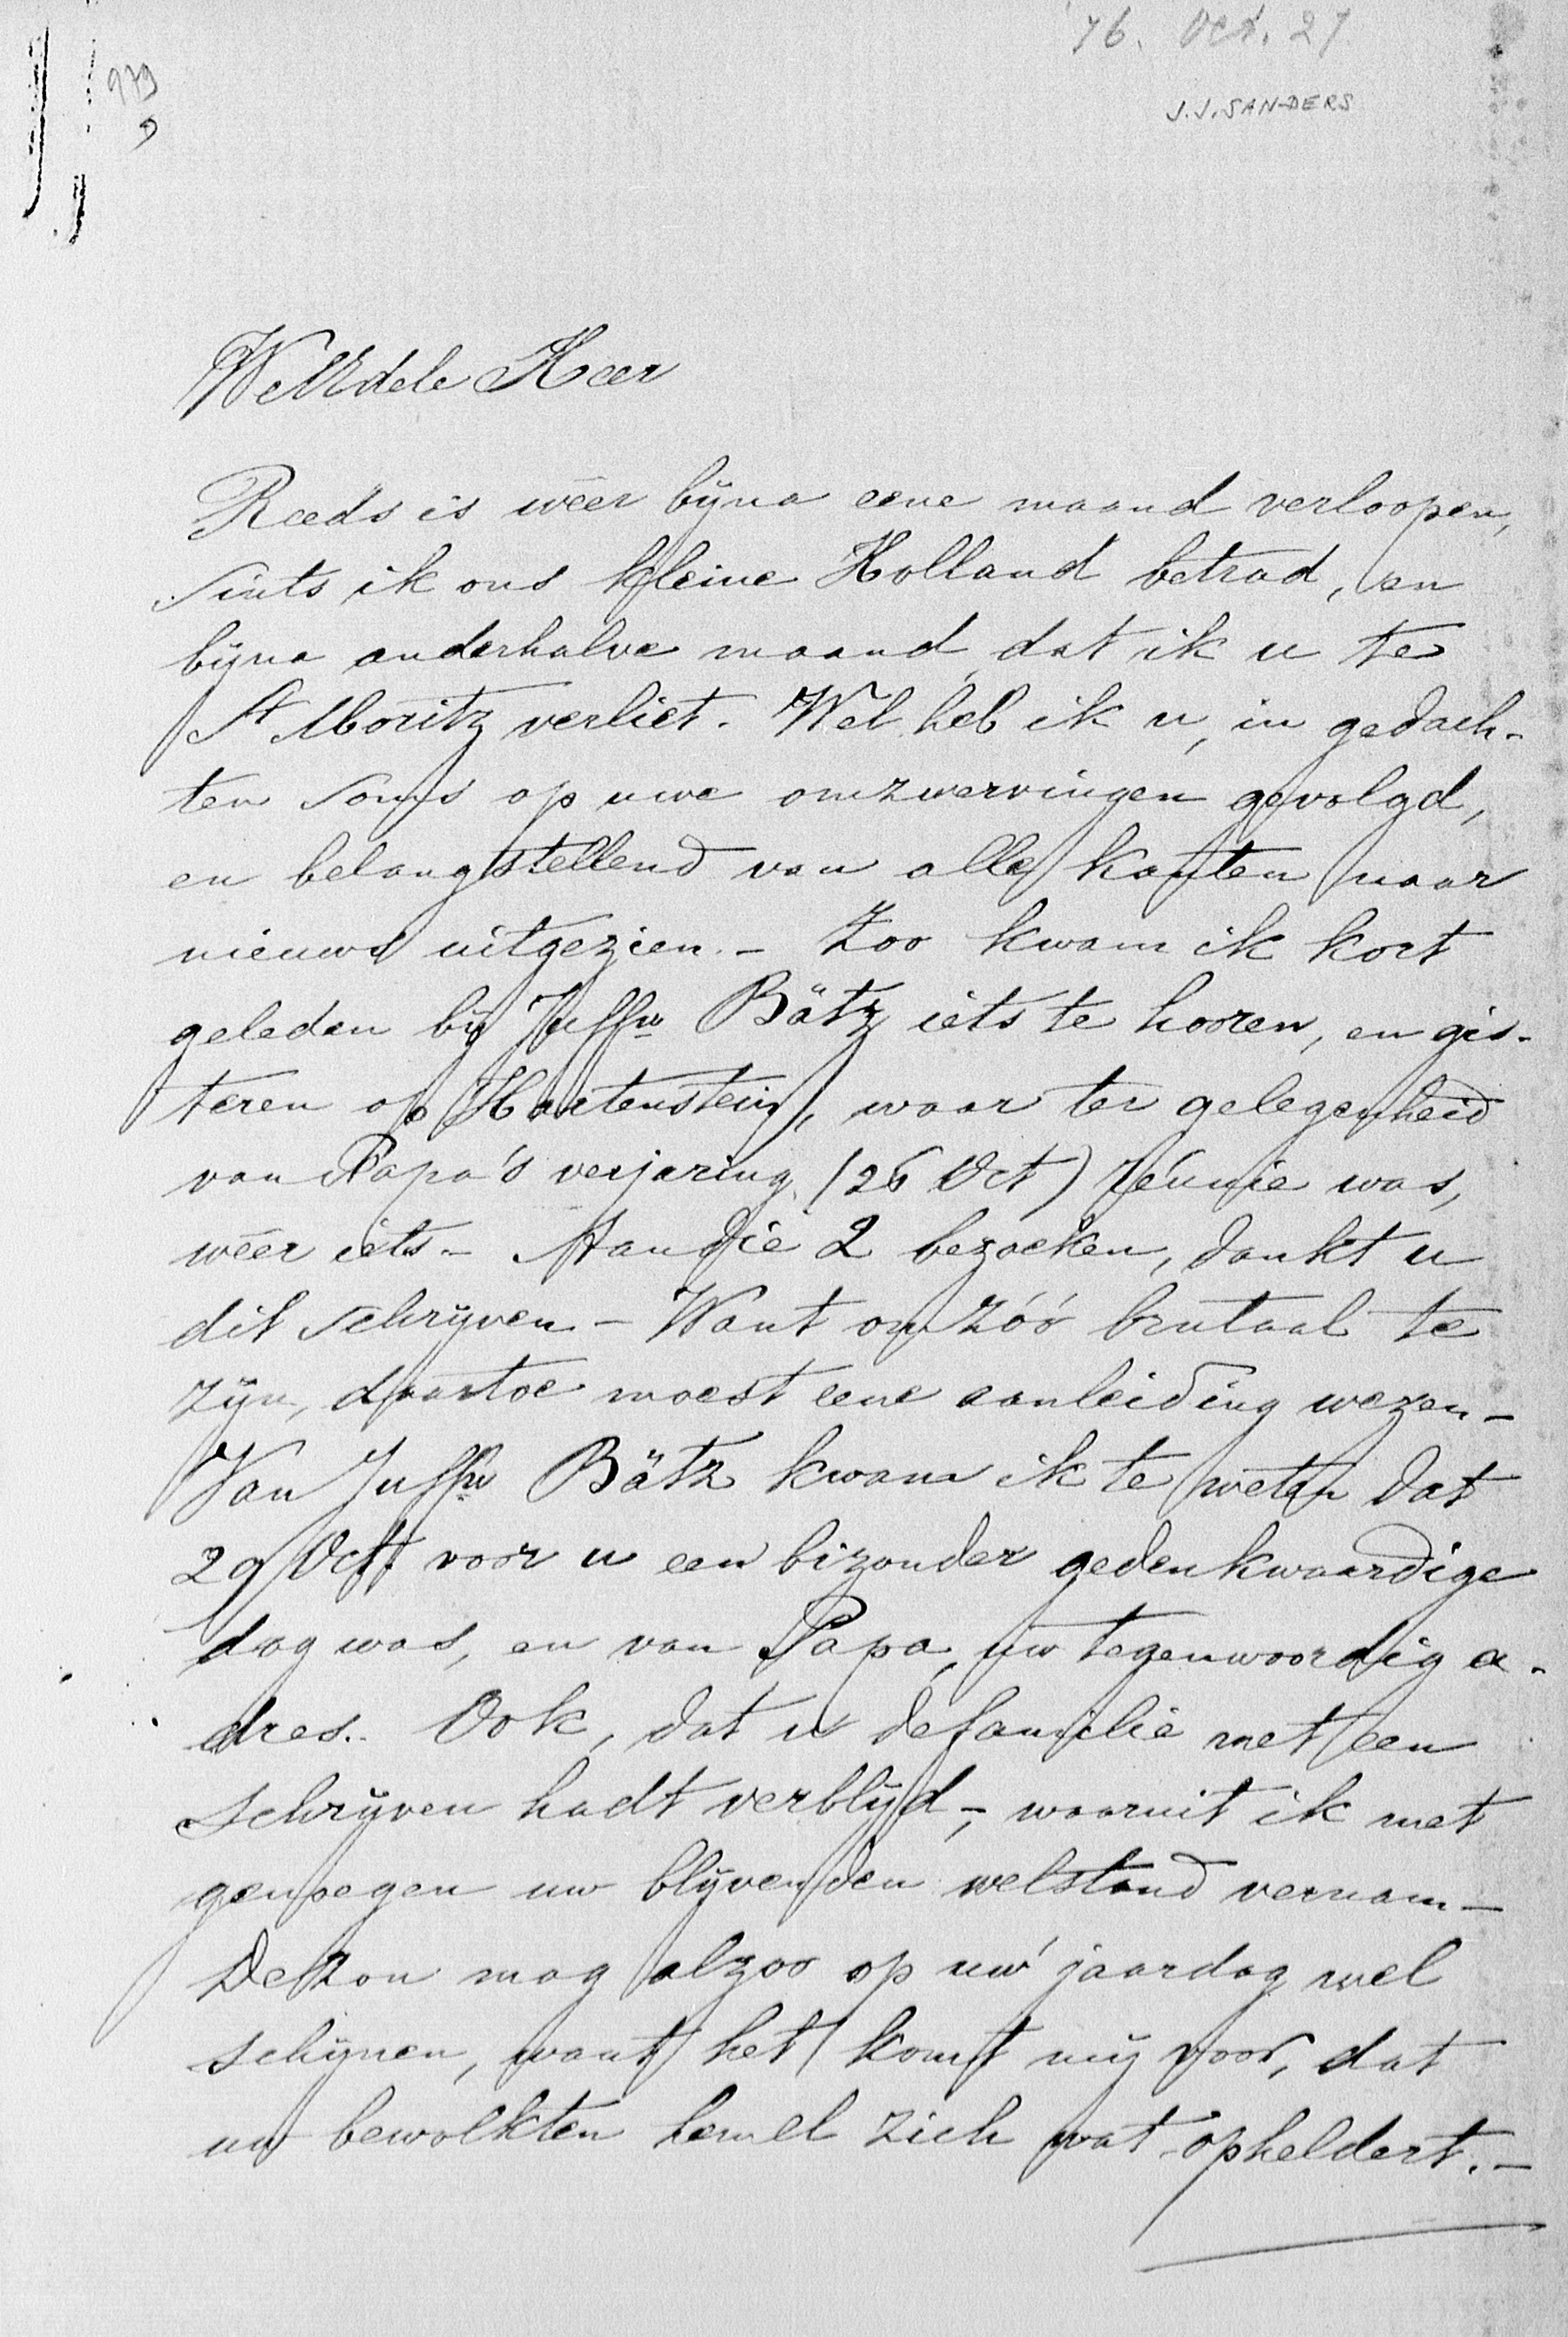 '76. Oct. 27
J.J. SANDERS
979
9
WelEdele Heer
Reeds is wêer bijna eene maand verloopen,
sints ik ons kleine Holland betrad, en
bijna anderhalve maand, dat ik u te
St Moritz verliet. Wel heb ik u, in gedach-
ten soms op uwe omzwervingen gevolgd,
en belangstellend van alle kanten naar
nieuws uitgezien. - Zoo kwam ik kort
geleden bij Juffw Bätz iets te hooren, en gis-
teren op Hartenstein, waar ter gelegenheid
van Papa's verjaring (26 Oct) réunie was,
wêer iets - Aan die 2 bezoeken, dankt u
dit schrijven - Want om zóó brutaal te
zijn, daartoe moest eene aanleiding wezen -
Van Juffw Bätz kwam ik te weten dat
29 Oct voor u een bizonder gedenkwaardige
dag was, en van Papa, uw tegenwoordig a-
dres. Ook, dat u de familie met een
schrijven hadt verblijd, - waaruit ik met
genoegen uw blijvenden welstand vernam -
De zon mag alzoo op uw' jaardag wel
schijnen, want het komt mij voor, dat
uw bewolkten hemel zich wat opheldert. -